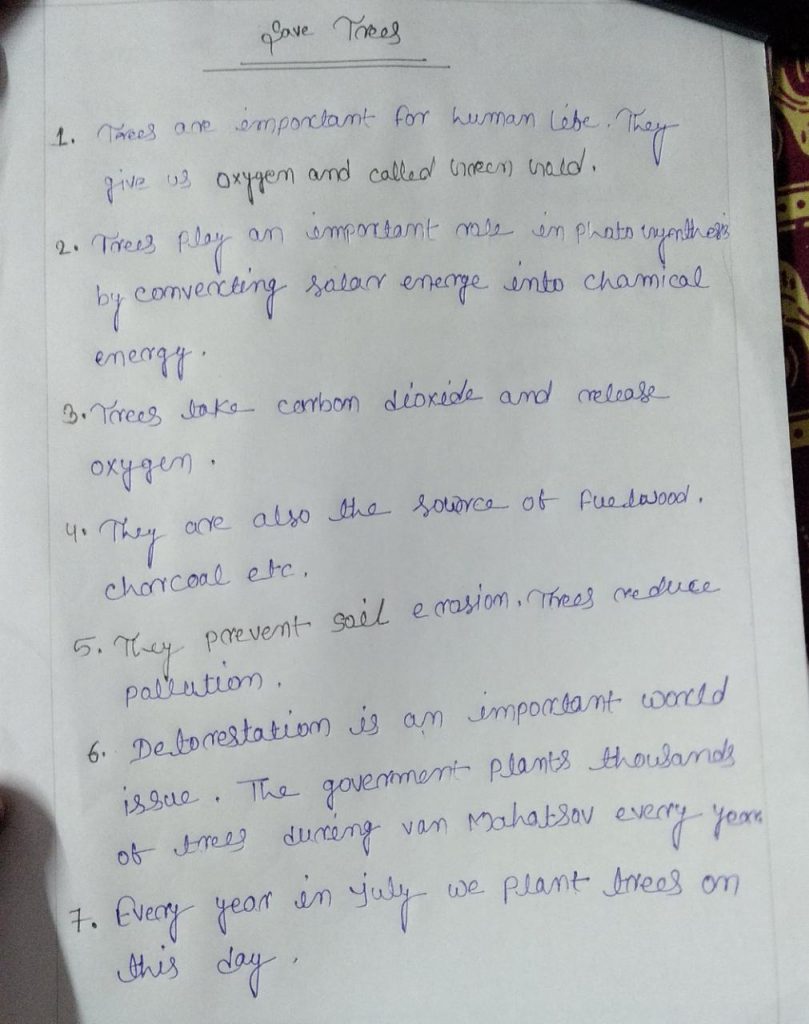 Save Trees
1. Trees are important for human life. They
give us oxygen and called Green Gold.
2. Trees play an important role in photosynthesis
by converting solar energe into chamical
energy.
3. Trees take carbon dioxide and release
oxygen.
4. They are also the source of fuelwood.
charcoal etc.
5. They prevent soil erosion. Trees reduce
pollution.
6. Deforestation is an important world
issue. The government plants thousands
of trees during van Mahotsav every year.
7. Every year in july we plant trees on
this day.